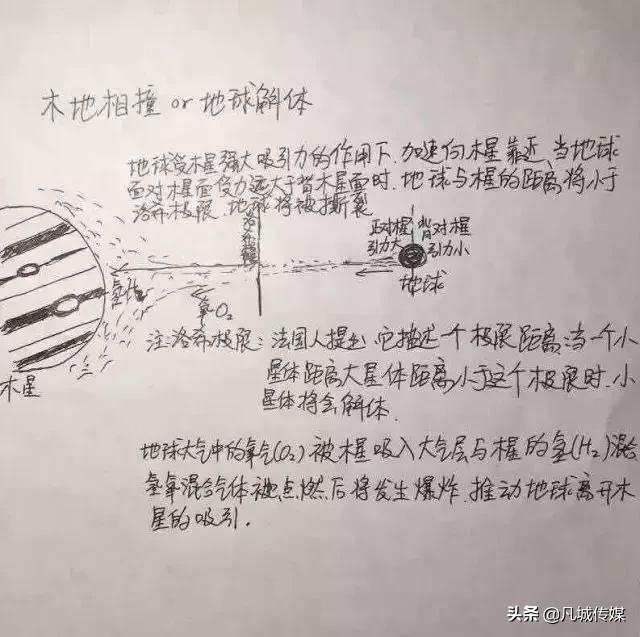 木地相撞 or 地球解体
地球受木星强大吸引力的作用下,加速向木星靠近、当地球
面对木星面受力远大于背木星面时.地球与木星的距离将小于
洛希极限.地球将被撕裂
洛希极限
正对木星
引力大
背对木星
引力小
氢H₂
氧O₂
地球
木星
注:洛希极限:法国人提出.它描述一个极限距离:当一个小
星体距离大星体距离小于这个极限时.小
星体将会解体.
地球大气中的氧气(O₂)被木星吸入大气层与木星的氢(H₂)混合
氢氧混合气体被点燃后将发生爆炸.推动地球离开木
星的吸引.
头条 @凡城传媒